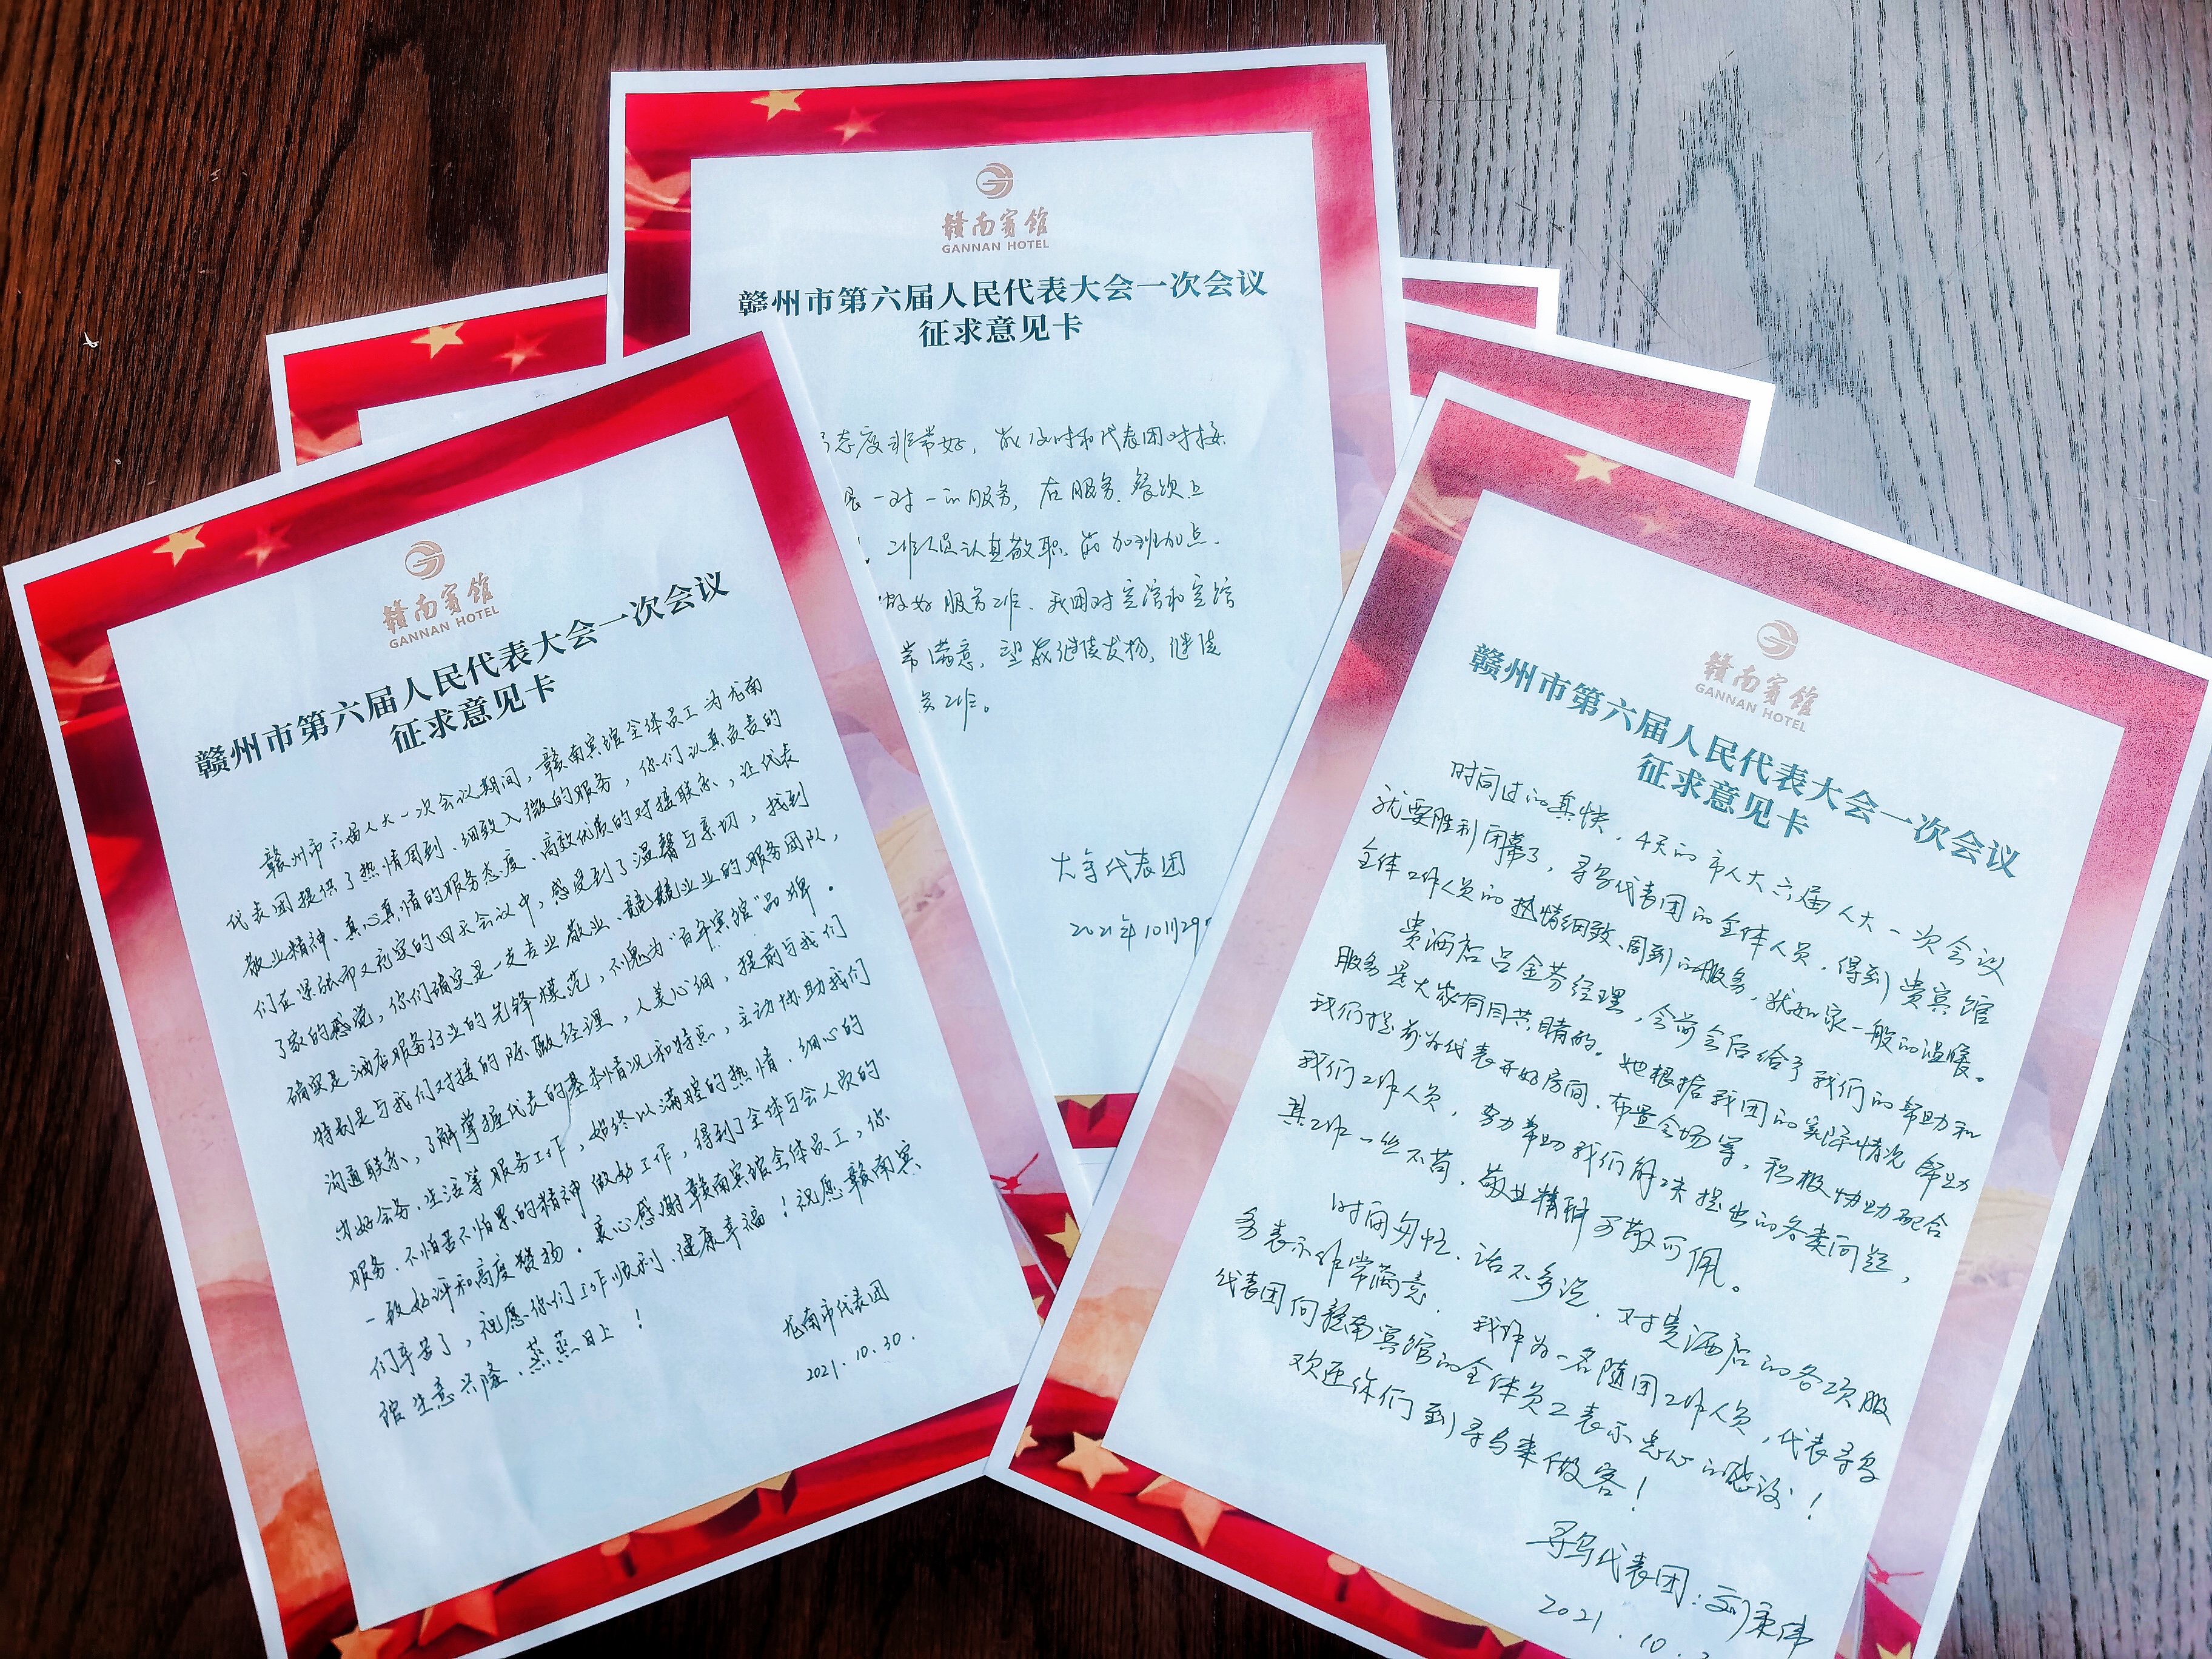 赣南宾馆
GANNAN HOTEL
赣州市第六届人民代表大会一次会议
征求意见卡
赣州市六届人大一次会议期间，赣南宾馆全体员工为龙南
代表团提供了热情周到、细致入微的服务，你们认真负责的
敬业精神、真心真情的服务态度、高效优质的对接联系，让代表
们在紧张而又充实的四天会议中，感受到了温馨与亲切，找到
了家的感觉，你们确实是一支专业敬业、兢兢业业的服务团队，
确实是酒店服务行业的先锋模范，不愧为“百年宾馆”品牌。
特别是与我们对接的陈敏经理，人美心细，提前与我们
沟通联系，了解掌握代表的基本情况和特点，主动协助我们
出好会务、生活等服务工作，始终以满腔的热情、细心的
服务、不怕苦不怕累的精神做好工作，得到了全体与会人员的
一致好评和高度赞扬。衷心感谢赣南宾馆全体员工，你
们辛苦了，祝愿你们工作顺利、健康幸福！祝愿赣南宾
馆生意兴隆、蒸蒸日上！
龙南市代表团
2021.10.30.
赣南宾馆
GANNAN HOTEL
赣州市第六届人民代表大会一次会议
征求意见卡
态度非常好，能及时和代表团对接
一对一的服务，在服务、餐饮上
工作人员认真敬职，能加班加点、
做好服务工作、我团对宾馆和宾馆
常满意，望能继续发扬，继续
务工作。
大余代表团
2021年10月29
赣南宾馆
GANNAN HOTEL
赣州市第六届人民代表大会一次会议
征求意见卡
时间过的真快，4天的市人大六届人大一次会议
就要胜利闭幕了，寻乌代表团的全体人员，得到贵宾馆
全体工作人员的热情细致、周到的服务，犹如家一般的温暖。
贵酒店吕金芬经理，会前会后给了我们的帮助和
服务是大家有目共睹的。她根据我团的实际情况帮助
我们提前为代表开好房间、布置会场等，积极协助配合
我们工作人员，努力帮助我们解决提出的各类问题，
其工作一丝不苟，敬业精神可敬可佩。
时间匆忙、话不多说，对贵酒店的各项服
务表示非常满意，我作为一名随团工作人员，代表寻乌
代表团向赣南宾馆的全体员工表示忠心的感谢！
欢迎你们到寻乌来做客！
寻乌代表团：刘秉伟
2021.10.